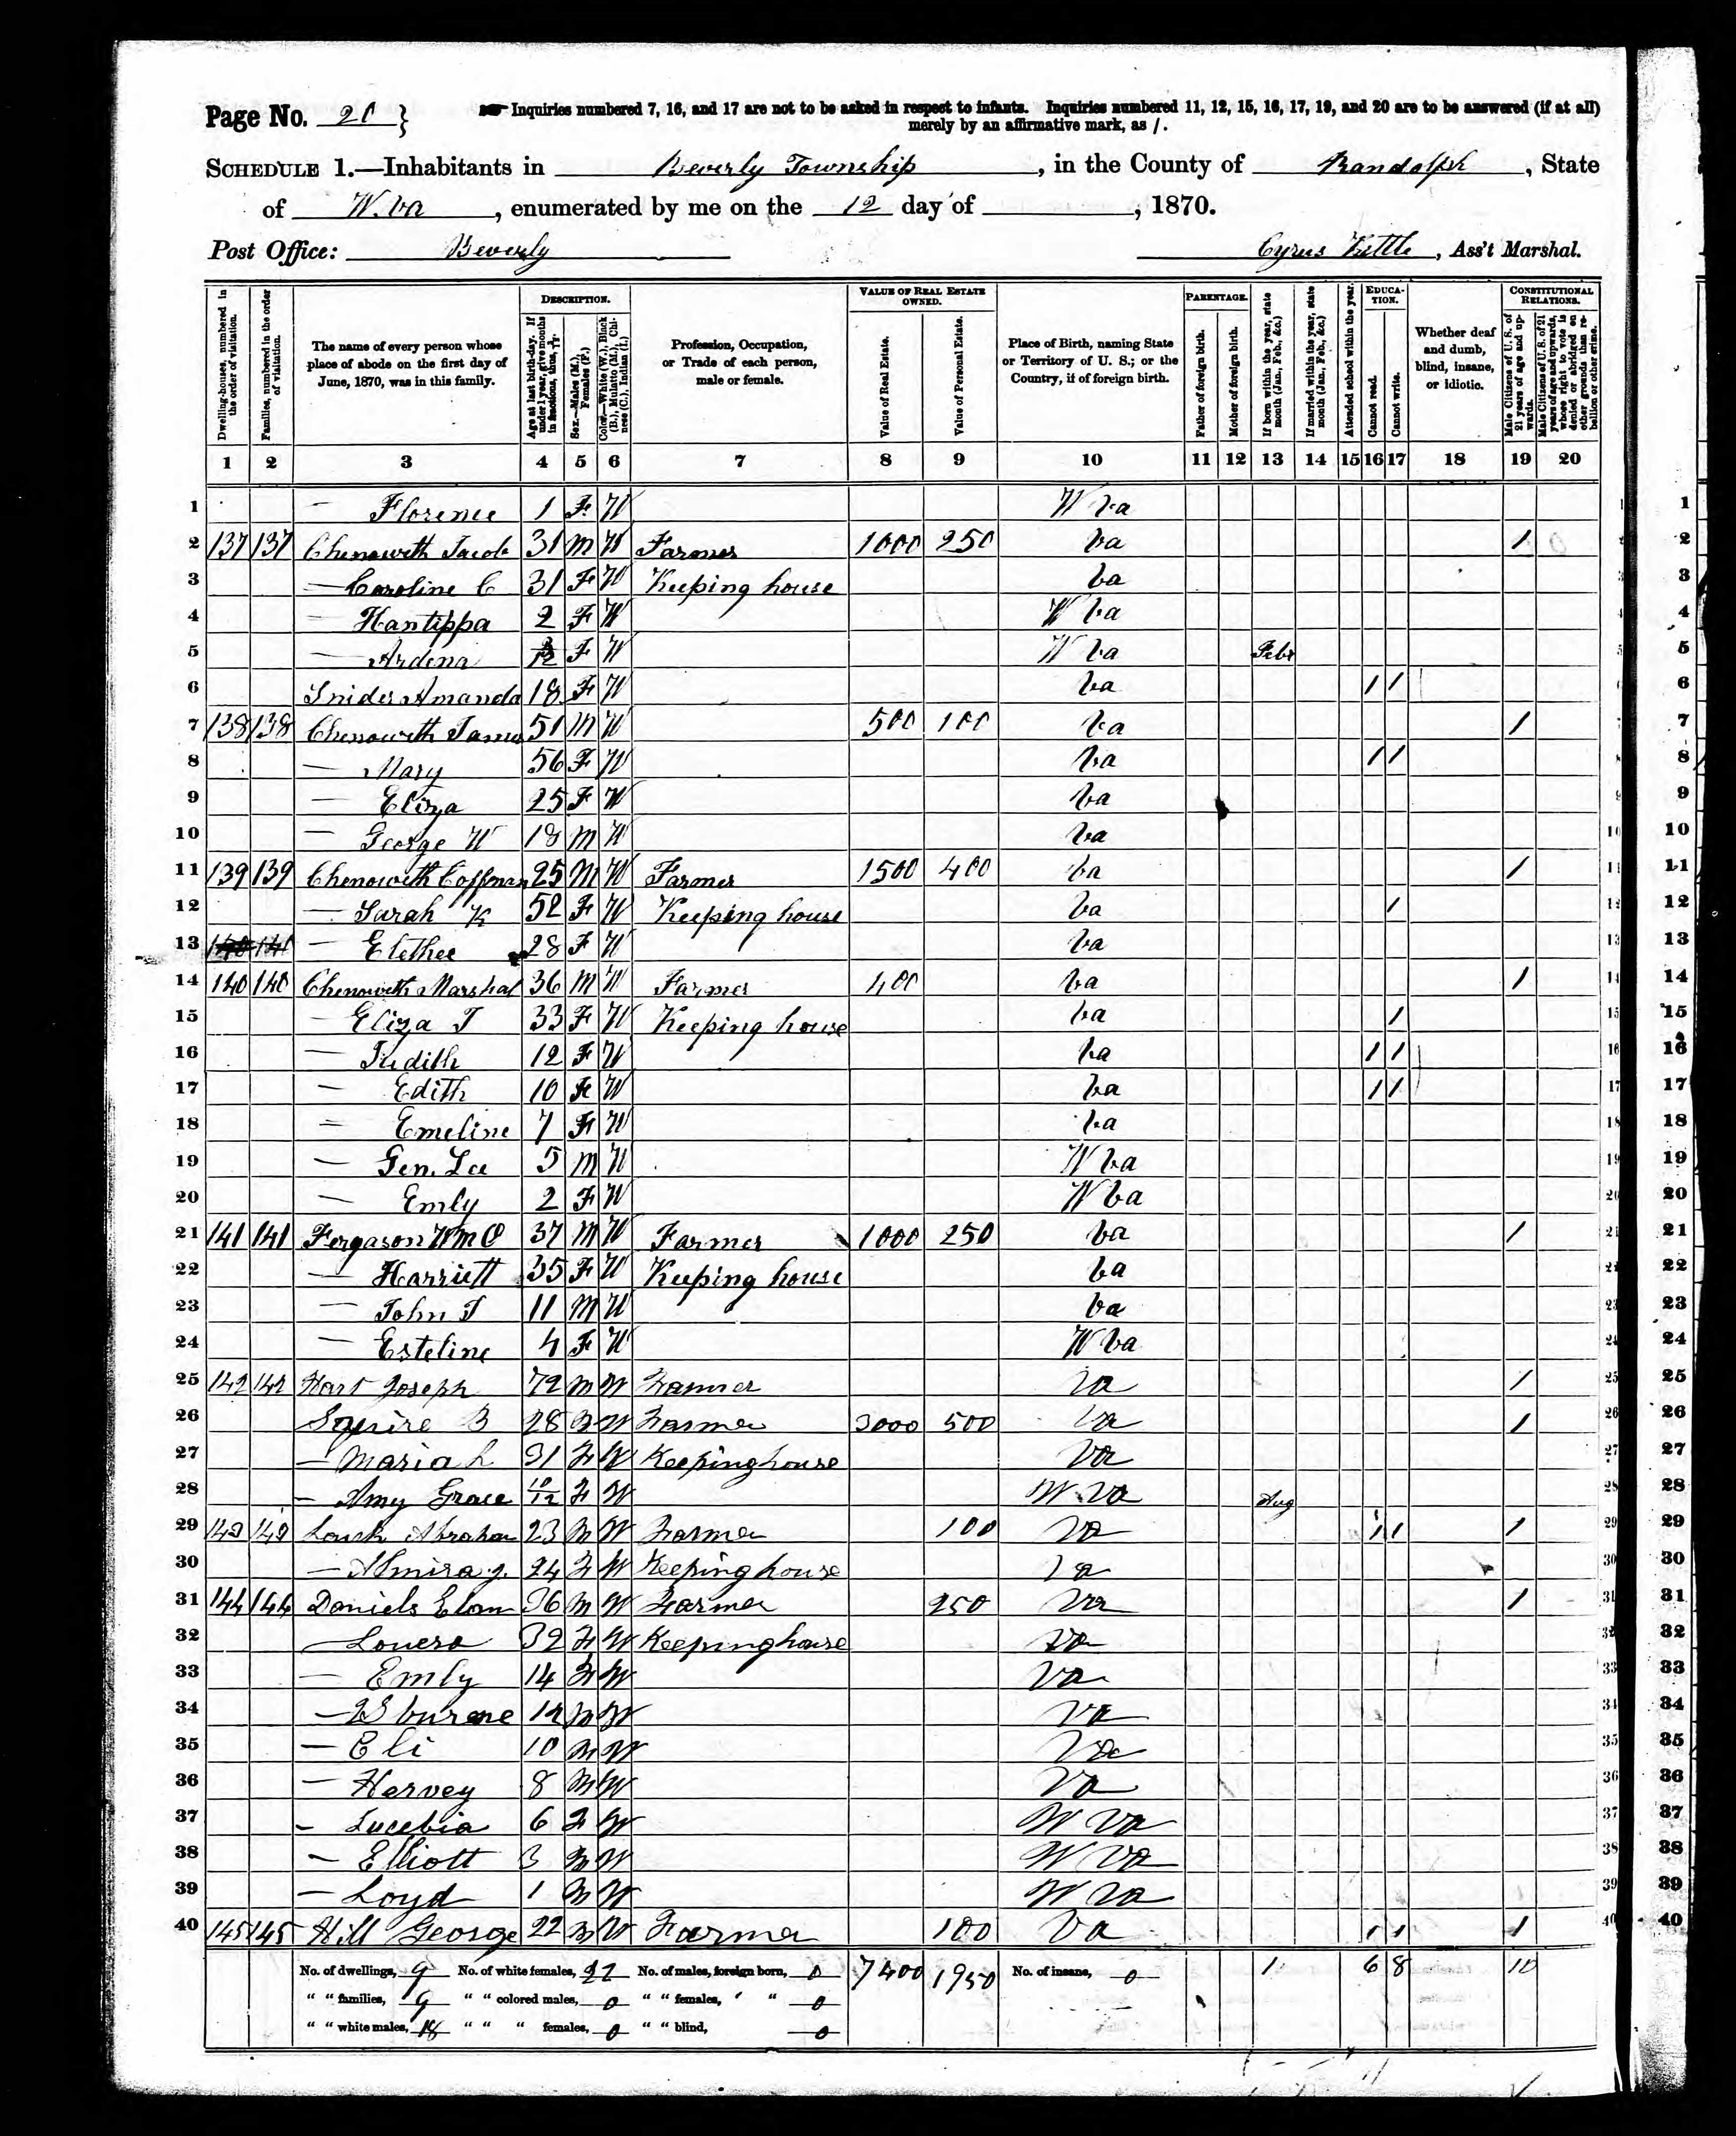 Page No. 20 }
Inquiries numbered 7, 16, and 17 are not to be asked in respect to infants. Inquiries numbered 11, 12, 15, 16, 17, 19, and 20 are to be answered (if at all)
merely by an affirmative mark, as /.
SCHEDULE 1.—Inhabitants in Beverly Township, in the County of Randolph, State
of W. Va, enumerated by me on the 12 day of , 1870.
Post Office: Beverly Cyrus Kittle, Ass't Marshal.
Dwelling-houses, numbered in the order of visitation.
Families, numbered in the order of visitation.
The name of every person whose place of abode on the first day of June, 1870, was in this family.
DESCRIPTION.
Age at last birth-day. If under 1 year, give months in fractions, thus, 3/12.
Sex.—Males (M.), Females (F.)
Color.—White (W.), Black (B.), Mulatto (M.), Chinese (C.), Indian (I.)
Profession, Occupation, or Trade of each person, male or female.
VALUE OF REAL ESTATE OWNED.
Value of Real Estate.
Value of Personal Estate.
Place of Birth, naming State or Territory of U. S.; or the Country, if of foreign birth.
PARENTAGE.
Father of foreign birth.
Mother of foreign birth.
If born within the year, state month (Jan., Feb., &c.)
If married within the year, state month (Jan., Feb., &c.)
Attended school within the year.
EDUCATION.
Cannot read.
Cannot write.
Whether deaf and dumb, blind, insane, or idiotic.
CONSTITUTIONAL RELATIONS.
Male Citizens of U. S. of 21 years of age and upwards.
Male Citizens of U. S. of 21 years of age and upwards, whose right to vote is denied or abridged on other grounds than rebellion or other crime.
1 2 3 4 5 6 7 8 9 10 11 12 13 14 15 16 17 18 19 20
1 — Florence 1 F W W Va 1
2 137 137 Chenowith Jacob 31 M W Farmer 1000 250 Va / 2
3 — Caroline C 31 F W Keeping house Va 3
4 — Hantippa 2 F W W Va 4
5 — Ardena 3/12 F W W Va Febr 5
6 Snider Amanda 18 F W Va / / 6
7 138 138 Chenowith James 51 M W 500 100 Va / 7
8 — Mary 56 F W Va / / 8
9 — Eliza 25 F W Va 9
10 — George W 18 M W Va 10
11 139 139 Chenowith Coffman 25 M W Farmer 1500 400 Va / 11
12 — Sarah K 52 F W Keeping house Va / 12
13 — Elethee 28 F W Va 13
14 140 140 Chenowith Marshal 36 M W Farmer 400 Va / 14
15 — Eliza J 33 F W Keeping house Va / 15
16 — Judith 12 F W Va / / 16
17 — Edith 10 F W Va / / 17
18 — Emeline 7 F W Va 18
19 — Gen. Lee 5 M W W Va 19
20 — Emly 2 F W W Va 20
21 141 141 Fergason Wm O 37 M W Farmer 1000 250 Va / 21
22 — Harriett 35 F W Keeping house Va 22
23 — John J 11 M W Va 23
24 — Esteline 4 F W W Va 24
25 142 142 Hart Joseph 72 M W Farmer Va / 25
26 Squire B 28 M W Farmer 3000 500 Va / 26
27 — Maria L 31 F W Keeping house Va 27
28 — Amy Grace 10/12 F W W Va Aug 28
29 143 143 Louk Abraham 23 M W Farmer 100 Va / / / 29
30 — Almira J. 24 F W Keeping house Va 30
31 144 144 Daniels Elam 36 M W Farmer 250 Va / 31
32 — Louera 32 F W Keeping house Va 32
33 — Emly 14 F W Va 33
34 — 12 M W Va 34
35 — Eli 10 M W Va 35
36 — Harvey 8 M W Va 36
37 — Lucebia 6 F W W Va 37
38 — Elliott 3 M W W Va 38
39 — Loyd 1 M W W Va 39
40 145 145 Hill George 22 M W Farmer 100 Va / / / 40
No. of dwellings, 9 No. of white females, 22 No. of males, foreign born, 0 7400 1950 No. of insane, 0 1 6 8 10
" " families, 9 " " colored males, 0 " " females, " " 0
" " white males, 18 " " " females, 0 " " blind, 0